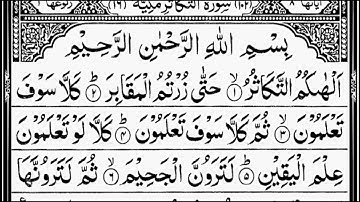 سُوْرَةُ التَّكَاثُرِ مَكِّيَّةٌ (١٠٢) (١٦)
بِسْمِ اللّٰهِ الرَّحْمٰنِ الرَّحِيْمِ
اَلْهٰىكُمُ التَّكَاثُرُ ۙ﴿١﴾ حَتّٰى زُرْتُمُ الْمَقَابِرَ ؕ﴿٢﴾ كَلَّا سَوْفَ
تَعْلَمُوْنَ ۙ﴿٣﴾ ثُمَّ كَلَّا سَوْفَ تَعْلَمُوْنَ ؕ﴿٤﴾ كَلَّا لَوْ تَعْلَمُوْنَ
عِلْمَ الْيَقِيْنِ ؕ﴿٥﴾ لَتَرَوُنَّ الْجَحِيْمَ ۙ﴿٦﴾ ثُمَّ لَتَرَوُنَّهَا